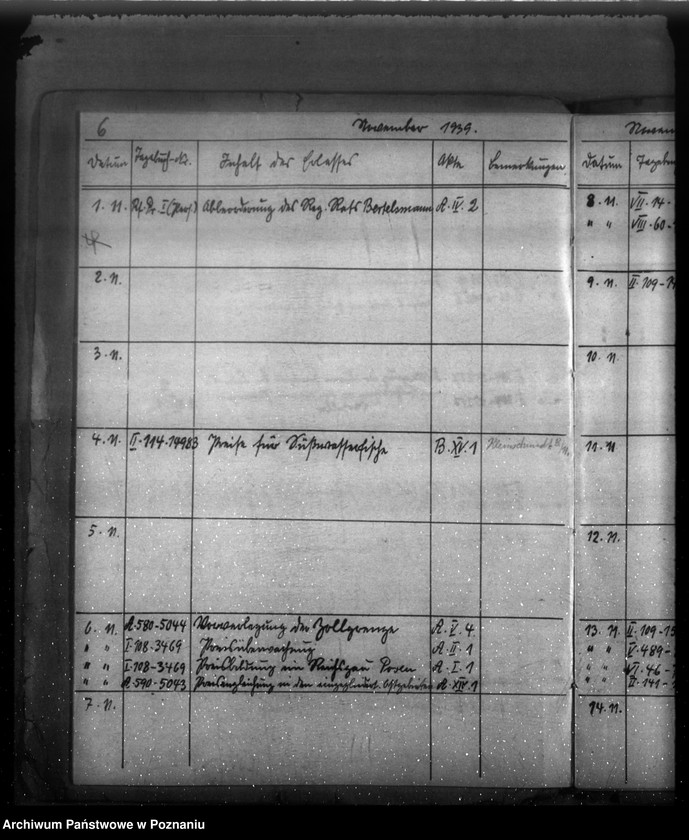 6 November 1939.
Datum Tagebuch-Nr. Inhalt des Erlasses Akte Bemerkungen
1. 11. Abordnung des Reg. Rats Bertelsmann A. IV. 2
2. 11.
3. 11.
4. 11. II-114-14983 Preise für Süßwasserfische B. XV. 1
5. 11.
6. 11. A. 580-5044 Vorverlegung der Zollgrenze A. V. 4
" " I-108-3469 Preisüberwachung A. II. 1
" " I-108-3469 Preisbildung im Reichsgau Posen A. I. 1
" " A. 590-5043 Preisangleichung in den eingegliedert. Ostgebieten A. XIV. 1
7. 11.
Datum
8. 11. VII-14-
" " VIII-60-
9. 11. II-109-
10. 11.
11. 11.
12. 11.
13. 11. II-109-
" " V-489-
" " VI-46-
" " II-141-
14. 11.
Archiwum Państwowe w Poznaniu